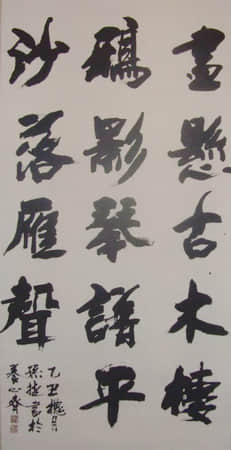 畫懸古木棲
鴉影琴譜平
沙落雁聲
乙丑槐月
書於
養心齋